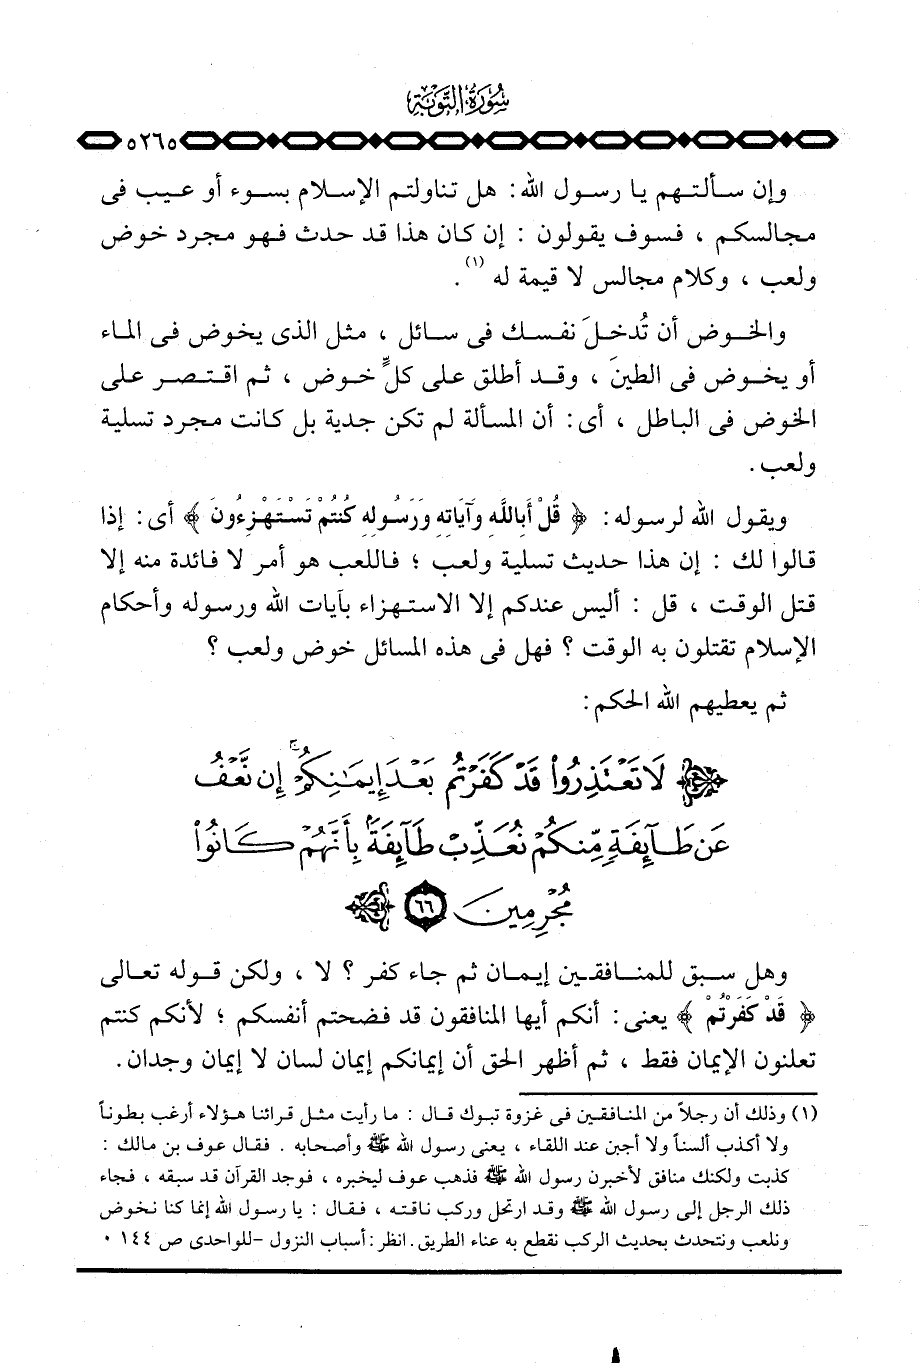 سُورَةُ التَّوْبَةِ
٥٢٦٥
وإن سـألتـهم يا رسول الله : هل تناولتم الإسلام بسوء أو عيب فى
مجالسكم ، فسوف يقولون : إن كان هذا قد حدث فهو مجرد خوض
ولعب ، وكلام مجالس لا قيمة له (١) .
والخوض أن تُدخلَ نفسك فى سائل ، مثل الذى يخوض فى الماء
أو يخوض فى الطين ، وقد أطلق على كلِّ خوض ، ثم اقتصر على
الخوض فى الباطل ، أى : أن المسألة لم تكن جدية بل كانت مجرد تسلية
ولعب .
ويقول الله لرسوله : ﴿ قُلْ أَبِاللَّهِ وَآيَاتِهِ وَرَسُولِهِ كُنتُمْ تَسْتَهْزِءُونَ ﴾ أى : إذا
قالوا لك : إن هذا حديث تسلية ولعب ؛ فاللعب هو أمر لا فائدة منه إلا
قتل الوقت ، قل : أليس عندكم إلا الاستهزاء بآيات الله ورسوله وأحكام
الإسلام تقتلون به الوقت ؟ فهل فى هذه المسائل خوض ولعب ؟
ثم يعطيهم الله الحكم :
لَا تَعْتَذِرُوا۟ قَدْ كَفَرْتُم بَعْدَ إِيمَـٰنِكُمْ ۚ إِن نَّعْفُ
عَن طَآئِفَةٍ مِّنكُمْ نُعَذِّبْ طَآئِفَةًۢ بِأَنَّهُمْ كَانُوا۟
مُجْرِمِينَ ٦٦
وهل سبق للمنافقين إيمان ثم جاء كفر ؟ لا ، ولكن قوله تعالى
﴿ قَدْ كَفَرْتُمْ ﴾ يعنى : أنكم أيها المنافقون قد فضحتم أنفسكم ؛ لأنكم كنتم
تعلنون الإيمان فقط ، ثم أظهر الحق أن إيمانكم إيمان لسان لا إيمان وجدان .
(١) وذلك أن رجلاً من المنافقين فى غزوة تبوك قال : ما رأيت مثل قرائنا هؤلاء أرغب بطوناً
ولا أكذب ألسناً ولا أجبن عند اللقاء ، يعنى رسول الله ﷺ وأصحابه . فقال عوف بن مالك :
كذبت ولكنك منافق لأخبرن رسول الله ﷺ فذهب عوف ليخبره ، فوجد القرآن قد سبقه ، فجاء
ذلك الرجل إلى رسول الله ﷺ وقد ارتحل وركب ناقته ، فقال : يا رسول الله إنما كنا نخوض
ونلعب ونتحدث بحديث الركب نقطع به عناء الطريق . انظر : أسباب النزول - للواحدى ص ١٤٤ .